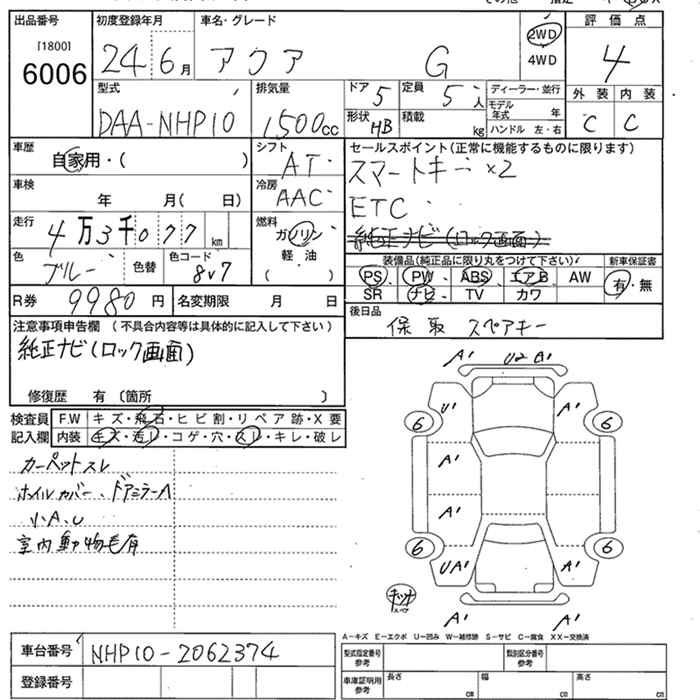 出品番号 初度登録年月 車名・グレード 2WD 評価点
[1800]
6006 24 6月 アクア G 4WD 4
型式 排気量 ドア 5 定員 5人 ディーラー・並行 外装 内装
DAA-NHP10 1500cc 形状 HB 積載 kg モデル年式 年 C C
ハンドル 左・右
車歴 自家用・( ) シフト AT セールスポイント(正常に機能するものに限ります)
スマートキー×2
車検 年 月( 日) 冷房 AAC ETC
走行 4万3千077km 燃料 ガソリン 純正ナビ(ロック画面)
軽油
( )
色 ブルー 色替 色コード 8V7 装備品(純正品に限り丸をつけて下さい) 新車保証書
PS PW ABS エアB AW 有・無
R券 9980円 名変期限 月 日 SR ナビ TV カワ
注意事項申告欄 (不具合内容等は具体的に記入して下さい) 後日品
純正ナビ(ロック画面) 保 取 スペアキー
修復歴 有(箇所 )
検査員 F.W キズ・飛石・ヒビ割・リペア跡・X要
記入欄 内装 キズ・汚レ・コゲ・穴・スレ・キレ・破レ
カーペットスレ
ホイルカバー、ドアミラーA
小A、U
室内動物毛有
A' U2 A'
U' A'
6 6
A'
A'
6 6
UA' A'
キット
A' A'
A-キズ E-エクボ U-凹み W-補修跡 S-サビ C-腐食 XX-交換済
車台番号 NHP10-2062374 型式指定番号 参考 類別区分番号 参考
登録番号 車庫証明用 参考 長さ cm 幅 cm 高さ cm